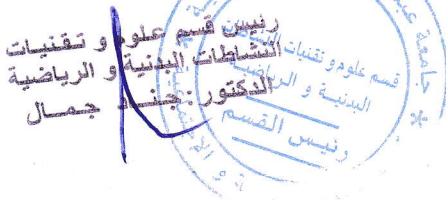 رئيس قسم علوم و تقنيات
النشاطات البدنية و الرياضية
الدكتور : جمال
جامعة
قسم علوم و تقنيات
البدنية و الرياضية
رئيس القسم